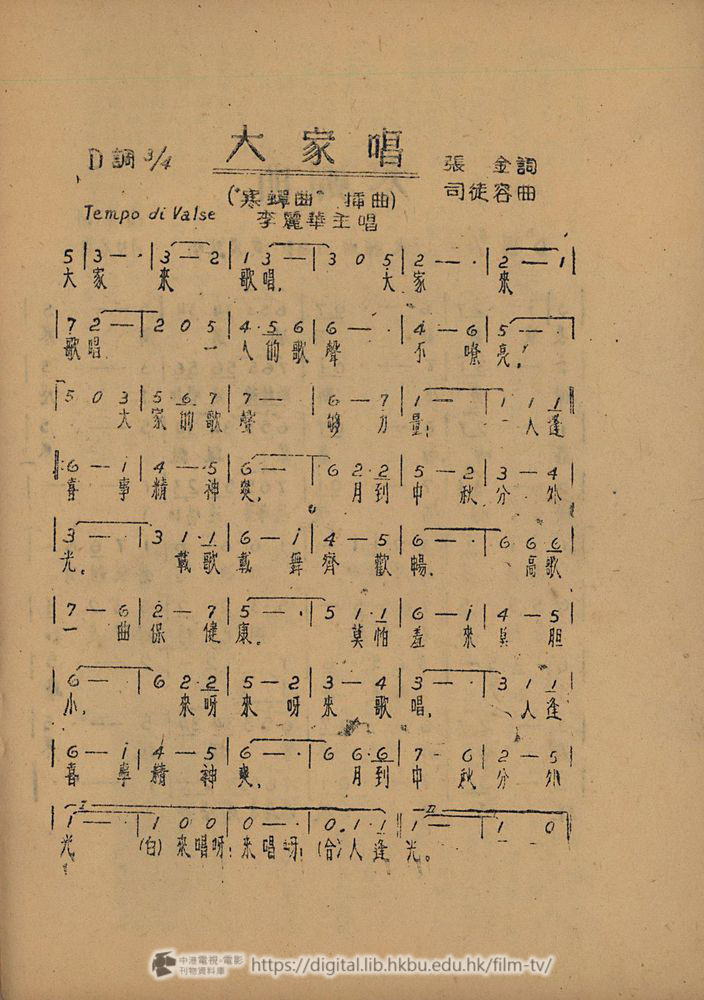 大家唱
D調 3/4
張金詞
("寒蟬曲" 插曲)
司徒容曲
Tempo di Valse
李麗華主唱
5 | 3 — · | 3 — 2 | 1 3 — · | 3 0 5 | 2 — · | 2 — 1 |
大 家 來 歌唱。 大 家 來
7 2 — | 2 0 5 | 4 · 5 6 | 6 — · | 4 — 6 | 5 —
歌唱 一 人的歌 聲 不 嘹 亮!
5 0 3 | 5 · 6 7 | 7 — | 6 — 7 | 1 — · | 1 1 1
大 家的歌 聲 够 力 量! 人逢
6 — i | 4 — 5 | 6 — · | 6 2 · 2 | 5 — 2 | 3 — 4 |
喜 事 精 神 爽, 月到 中 秋 分 外
3 — · | 3 1 · 1 | 6 — i | 4 — 5 | 6 — · | 6 6 6 |
光。 載歌 載 舞 齊 歡 暢。 高歌
7 — 6 | 2 — 7 | 5 — · | 5 1 · 1 | 6 — i | 4 — 5 |
一 曲 保 健 康。 莫怕 羞 來 莫 胆
6 — · | 6 2 · 2 | 5 — 2 | 3 — 4 | 3 — · | 3 1 1
小, 來呀 來 呀 來 歌 唱, 人逢
6 — i | 4 — 5 | 6 — · | 6 6 · 6 | 7 — 6 | 2 — 5 |
喜 事 精 神 爽, 月到 中 秋 分 外
I II
1 — · | 1 0 0 | 0 — · | 0 1 · 1 | 1 — · | 1 0
光 (白) 來唱呀! 來唱呀! (合) 人逢 光。
中港電視·電影
刊物資料庫
https://digital.lib.hkbu.edu.hk/film-tv/